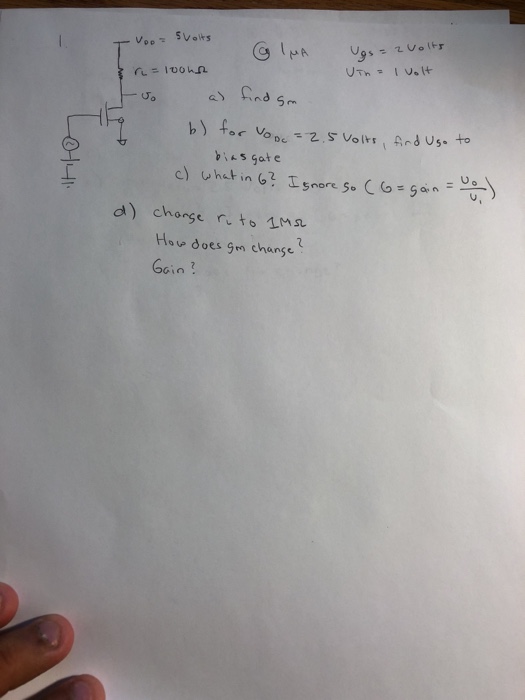 1.
VDD = 5Volts
@ 1μA
Vgs = 2 Volts
rL = 100kΩ
VTh = 1 Volt
Vo
a) find gm
b) for VODC = 2.5 Volts, find Vgs to
bias gate
c) what in G? Ignore go (G = gain = Vo/Vi)
d) change rL to 1MΩ
How does gm change?
Gain?